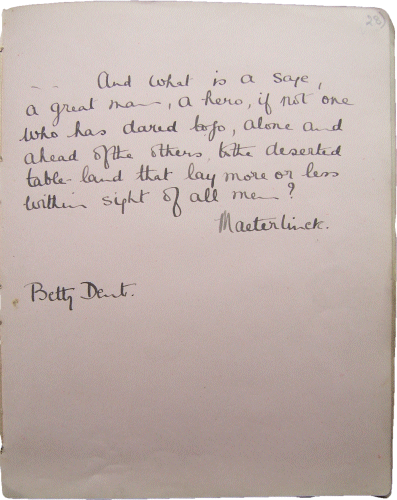 23
... And what is a sage,
a great man, a hero, if not one
who has dared to go, alone and
ahead of the others, to the deserted
table-land that lay more or less
within sight of all men?
Maeterlinck.
Betty Dent.